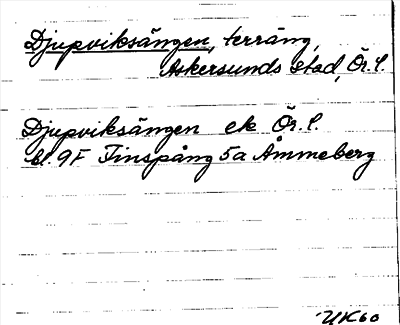 Djupviksängen, terräng,
Askersunds stad, Ör. l.
Djupviksängen ek Ör. l.
bl. 9F Finspång 5a Åmmeberg
YK60